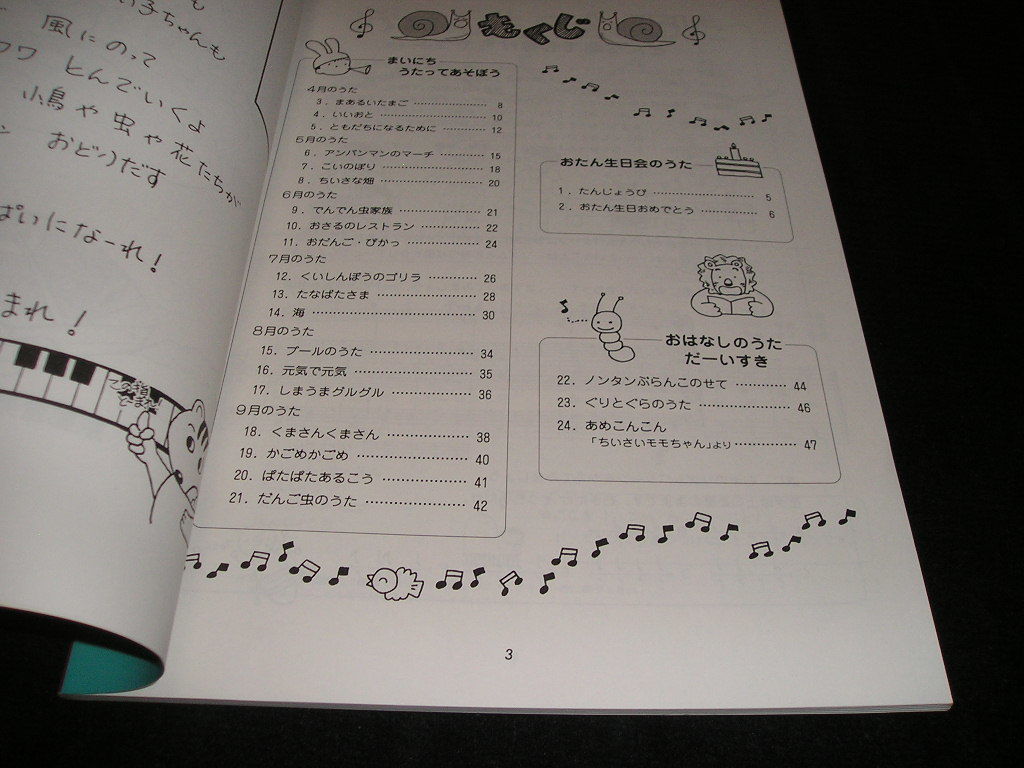 も
子ちゃんも
風にのって
ワワ とんでいくよ
小鳥や虫や花たちが
おどりだす
ぱいになーれ!
まれ!
もくじ
まいにち
うたってあそぼう
4月のうた
3. まあるいたまご 8
4. いいおと 10
5. ともだちになるために 12
5月のうた
6. アンパンマンのマーチ 15
7. こいのぼり 18
8. ちいさな畑 20
6月のうた
9. でんでん虫家族 21
10. おさるのレストラン 22
11. おだんご・ぴかっ 24
7月のうた
12. くいしんぼうのゴリラ 26
13. たなばたさま 28
14. 海 30
8月のうた
15. プールのうた 34
16. 元気で元気 35
17. しまうまグルグル 36
9月のうた
18. くまさんくまさん 38
19. かごめかごめ 40
20. ぱたぱたあるこう 41
21. だんご虫のうた 42
おたん生日会のうた
1. たんじょうび 5
2. おたん生日おめでとう 6
おはなしのうた
だーいすき
22. ノンタンぶらんこのせて 44
23. ぐりとぐらのうた 46
24. あめこんこん
「ちいさいモモちゃん」より 47
3